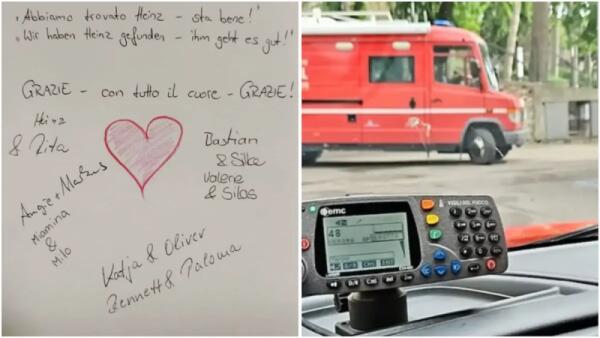 „Abbiamo trovato Heinz – sta bene!"
„Wir haben Heinz gefunden – ihm geht es gut!"
GRAZIE – con tutto il cuore – GRAZIE!
Heinz
& Rita
Bastian
& Silke
Valerie
& Silas
Angie + Markus
Miamina
& Milo
Katja & Oliver
Bennett & Paloma
emc
VIGILI DEL FUOCO
48